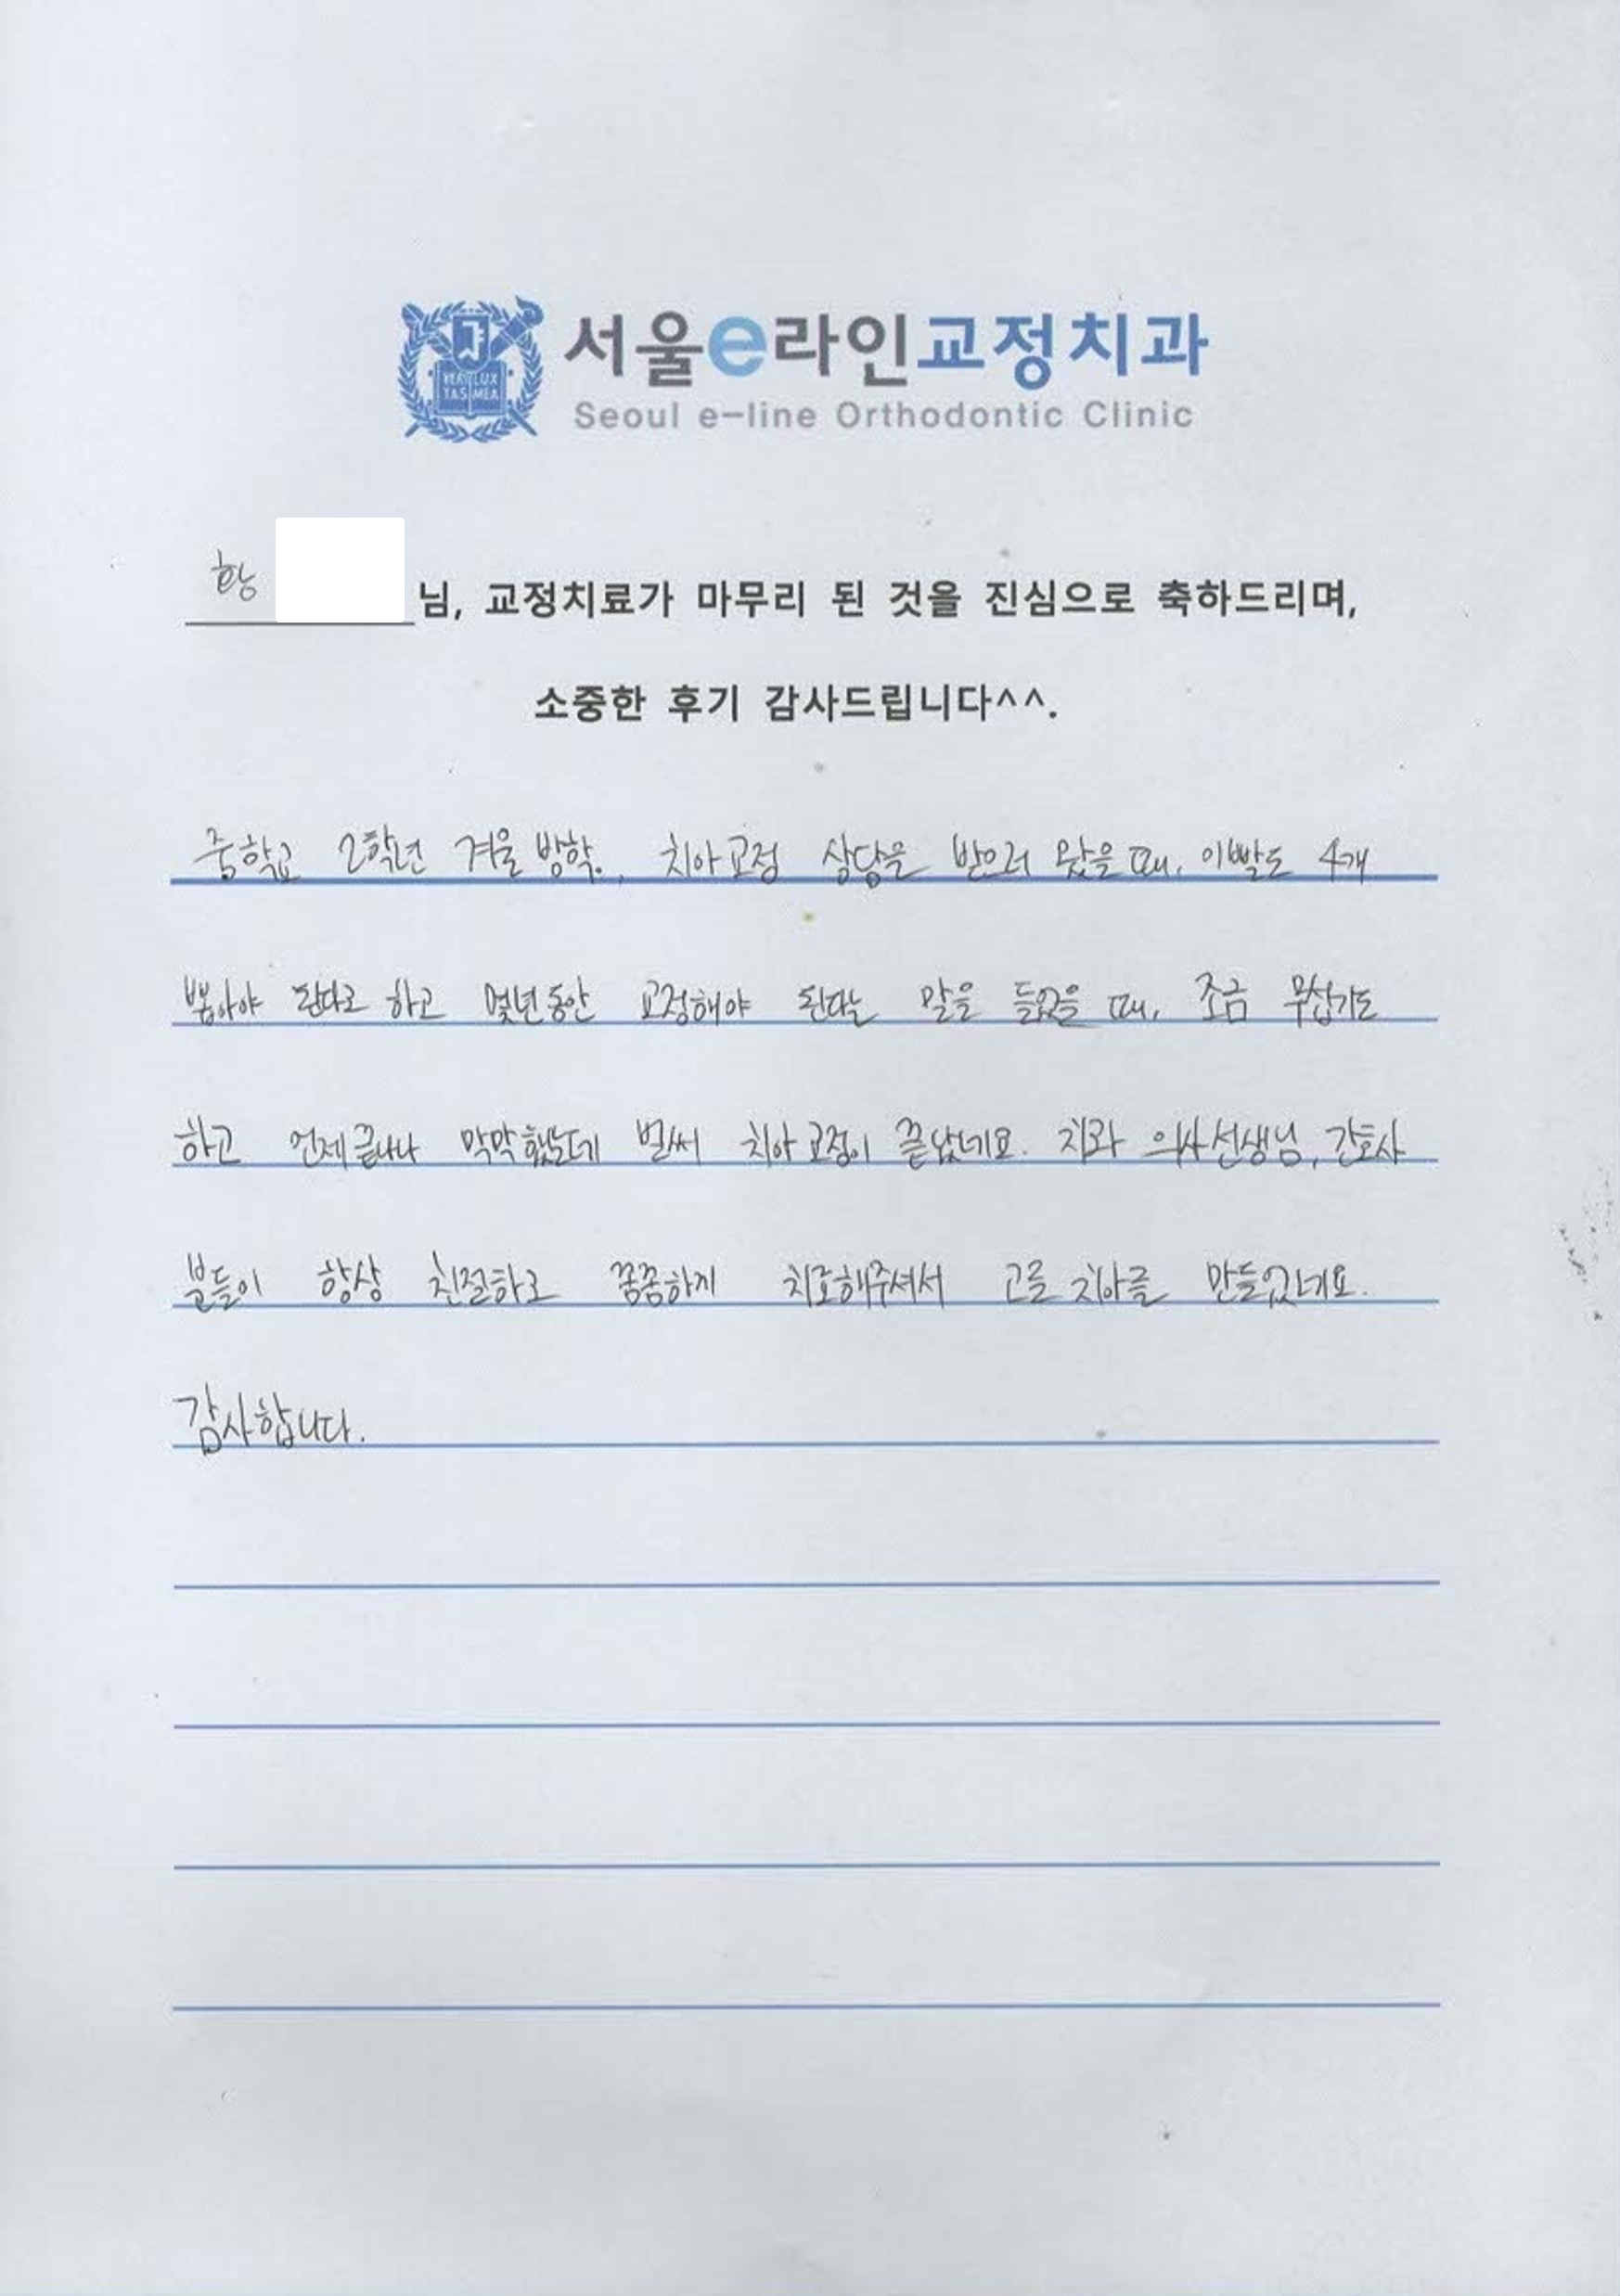 VERI LUX
TAS MEA
서울e라인교정치과
Seoul e-line Orthodontic Clinic
황 님, 교정치료가 마무리 된 것을 진심으로 축하드리며,
소중한 후기 감사드립니다^^.
중학교 2학년 겨울 방학., 치아교정 상담을 받으러 왔을 때, 이빨도 4개
뽑아야 된다고 하고 몇년동안 교정해야 된다는 말을 들었을 때, 조금 무섭기도
하고 언제끝나나 막막했는데 벌써 치아교정이 끝났네요. 치과 의사선생님, 간호사
분들이 항상 친절하고 꼼꼼하게 치료해주셔서 고른 치아를 만들었네요.
감사합니다.